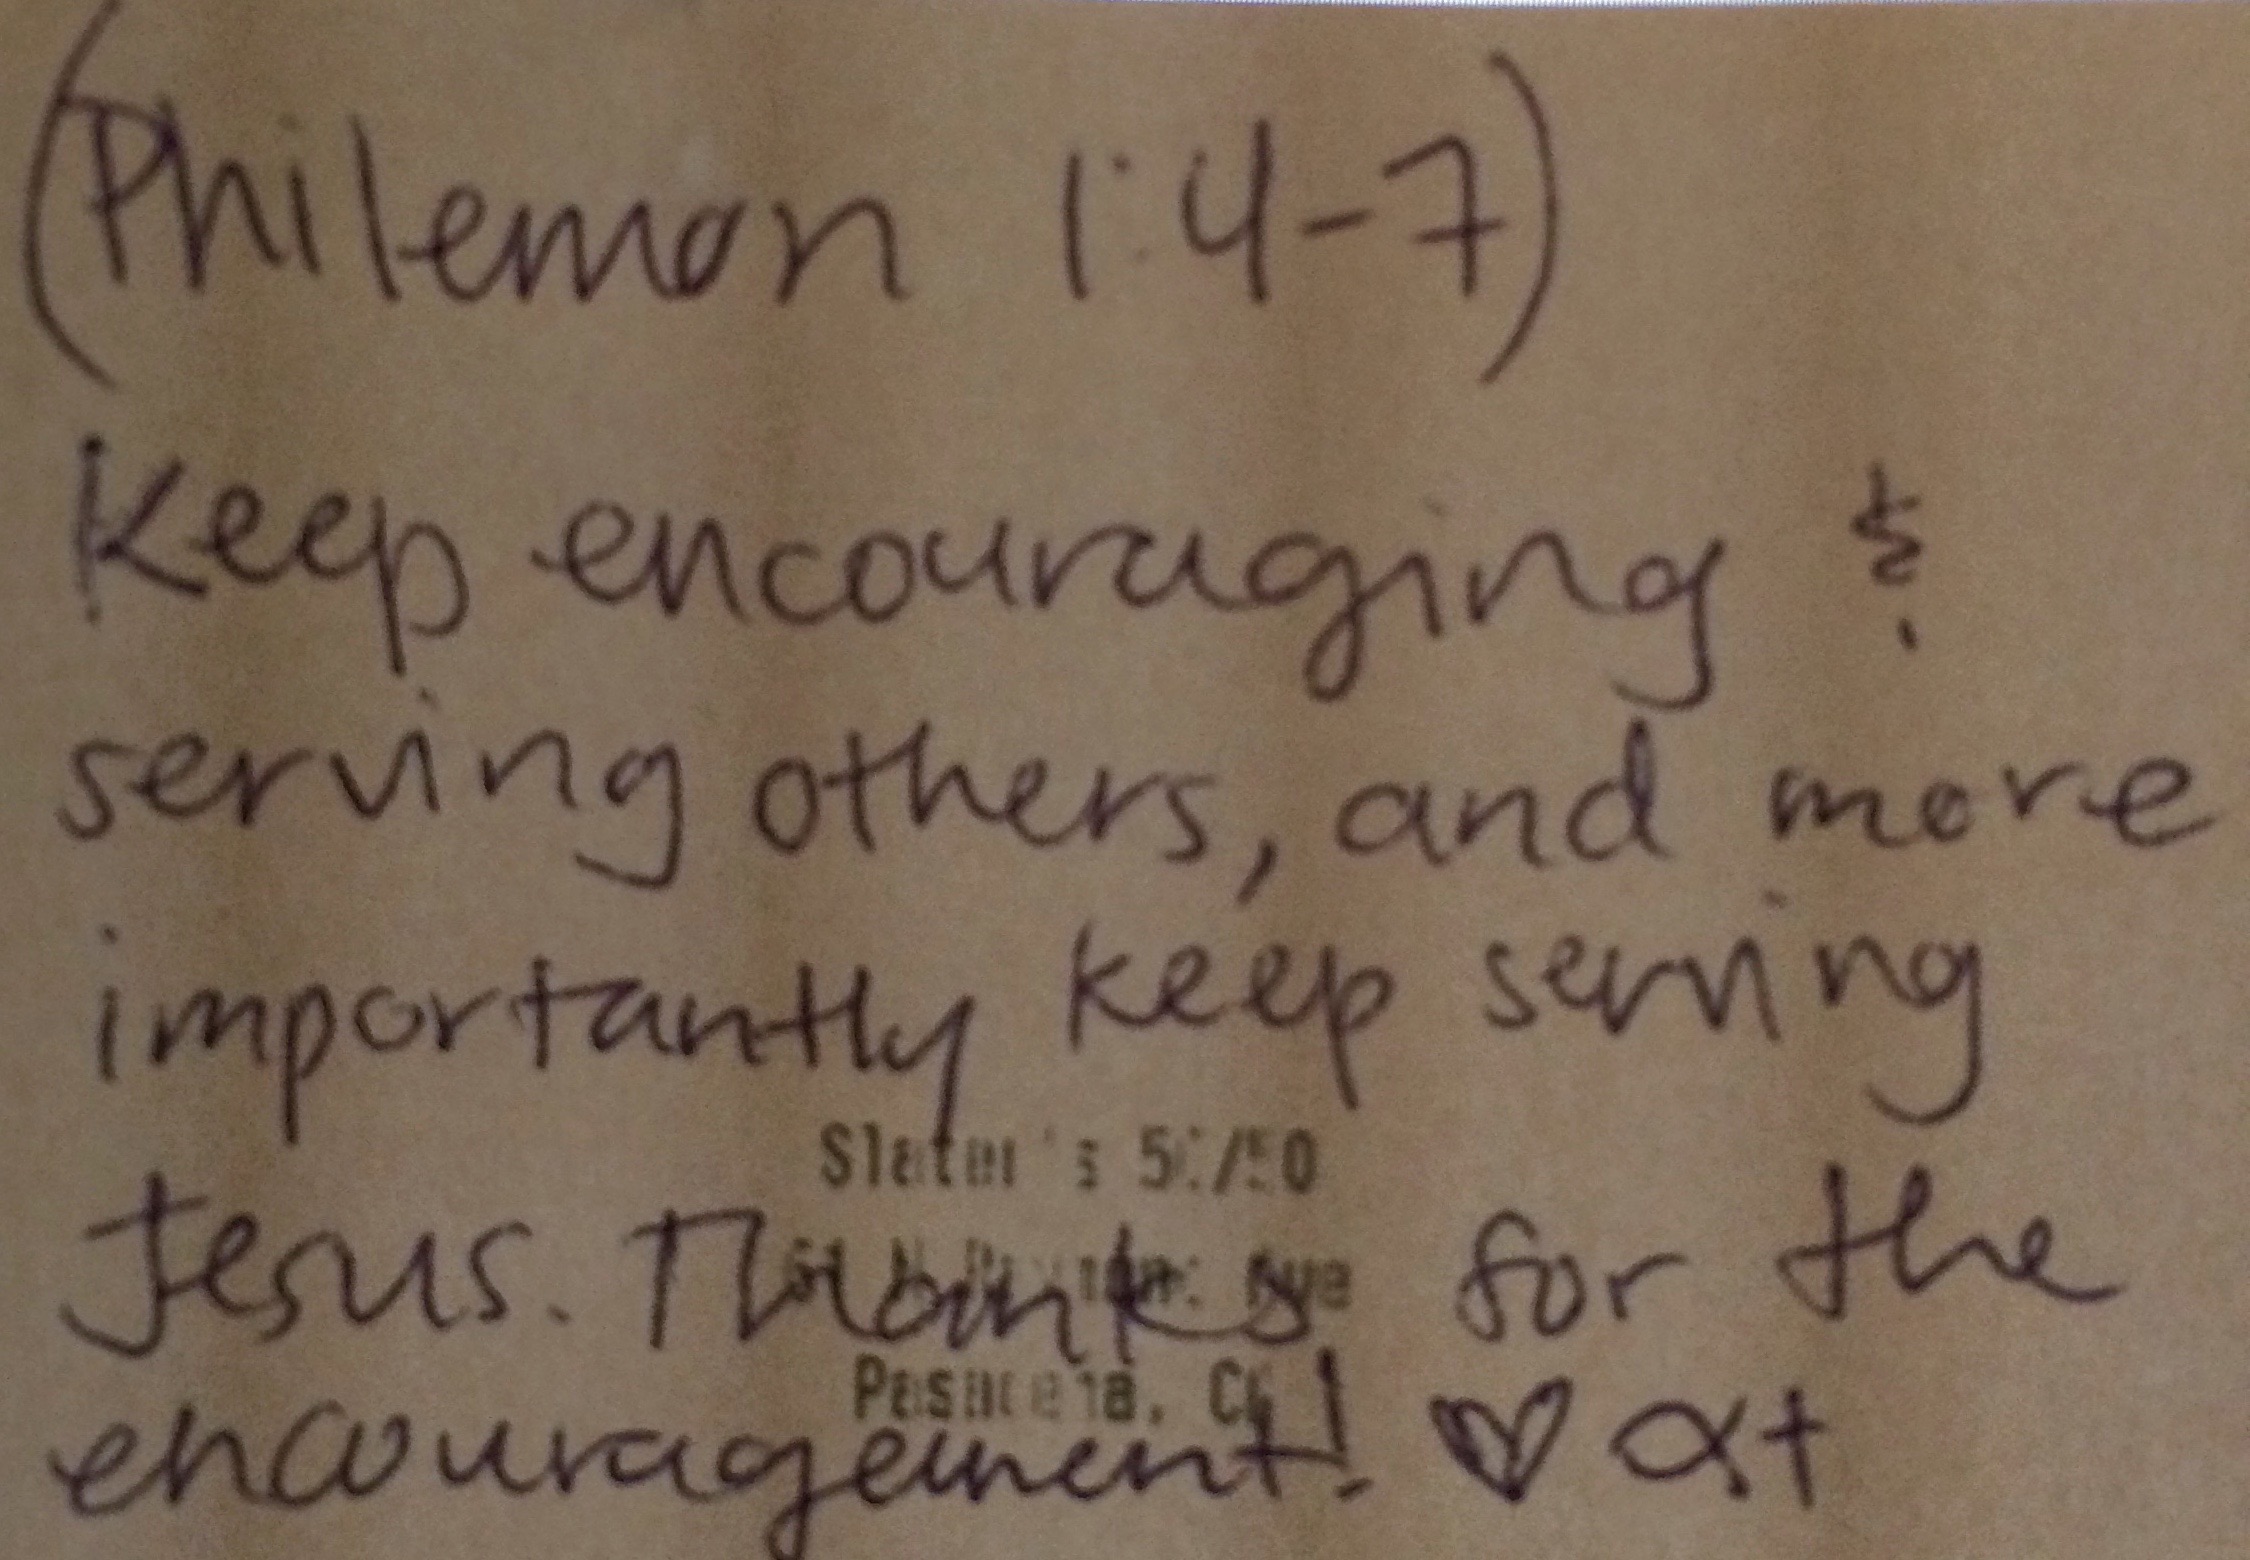 (Philemon 1:4-7)
Keep encouraging &
serving others, and more
importantly keep serving
Slater's 50/50
Jesus. Thanks for the
Ave
Pasadena, CA
encouragement! ♡ αt